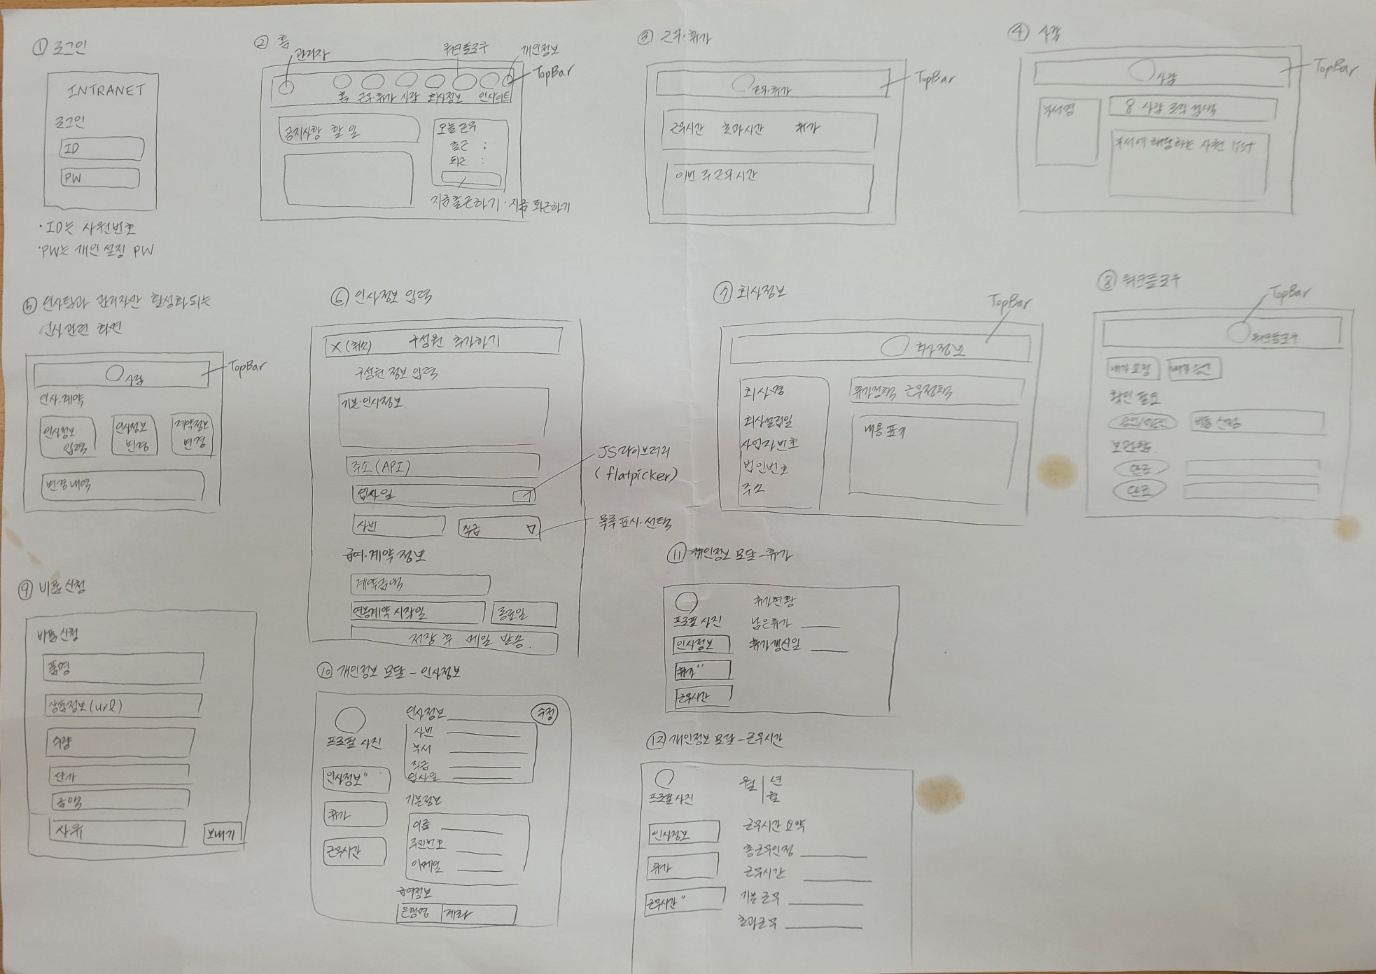 ① 로그인
INTRANET
로그인
ID
PW
·ID는 사원번호
·PW는 개인설정 PW
② 홈
관리자
워크플로우
개인정보
TopBar
홈 근무·휴가 사람 회사정보 인사이트
공지사항 할 일
오늘 근무
출근 :
퇴근 :
지금 출근하기 · 지금 퇴근하기
③ 근무·휴가
TopBar
근무·휴가
근무시간 초과시간 휴가
이번 주 근무시간
④ 사람
TopBar
사람
부서명
사람 조직 검색
부서에 해당하는 사원 list
⑤ 인사팀과 관리자만 활성화되는
인사관련 화면
TopBar
사람
인사·계약
인사정보
입력
인사정보
변경
계약정보
변경
변경내역
⑥ 인사정보 입력
X (취소) 구성원 추가하기
구성원 정보 입력
기본·인사정보
주소 (API)
입사일
JS라이브러리
(flatpicker)
사번
직급
목록표시·선택
급여·계약 정보
계약금액
연봉계약 시작일
종료일
저장 후 메일 발송
⑦ 회사정보
TopBar
회사정보
회사명
회사설립일
사업자번호
법인번호
주소
휴가정책 근무정책
내용표기
⑧ 워크플로우
TopBar
워크플로우
내가 요청
내가 승인
확인 필요
비용신청
보관함
완료
완료
⑨ 비용신청
비용신청
품명
상품정보(url)
수량
단가
금액
사유
보내기
⑩ 개인정보 모달 - 인사정보
프로필 사진
인사정보"
휴가
근무시간
인사정보
수정
사번
부서
직급
입사일
기본정보
이름
주민번호
이메일
급여정보
은행명
계좌
⑪ 개인정보 모달 - 휴가
프로필 사진
인사정보
휴가"
근무시간
휴가현황
남은휴가
휴가갱신일
⑫ 개인정보 모달 - 근무시간
프로필 사진
인사정보
휴가
근무시간"
월
년
월
근무시간 요약
총근무인정
근무시간
기본근무
초과근무